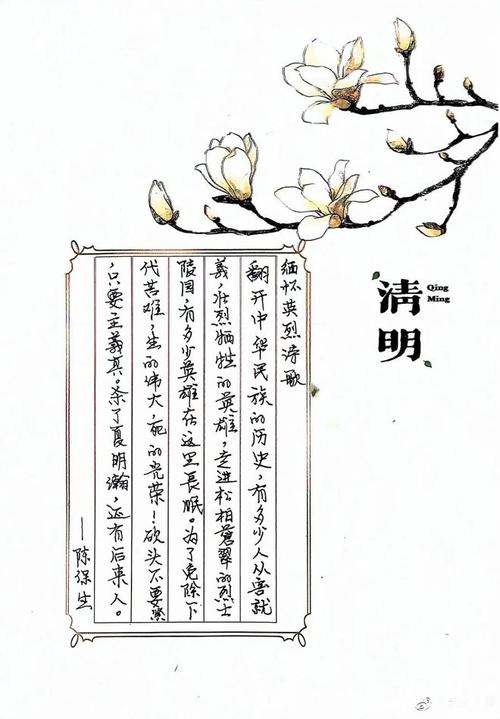 清明
Qing
Ming
缅怀英烈诗歌
翻开中华民族的历史，有多少人从容就
義，壮烈牺牲的英雄，走进松柏蒼翠的烈士
陵园，有多少英雄在这里長眠。为了免除下
代苦难，生的伟大，死的光荣！砍头不要紧
，只要主義真。杀了夏明瀚，还有后来人。
—陈保生